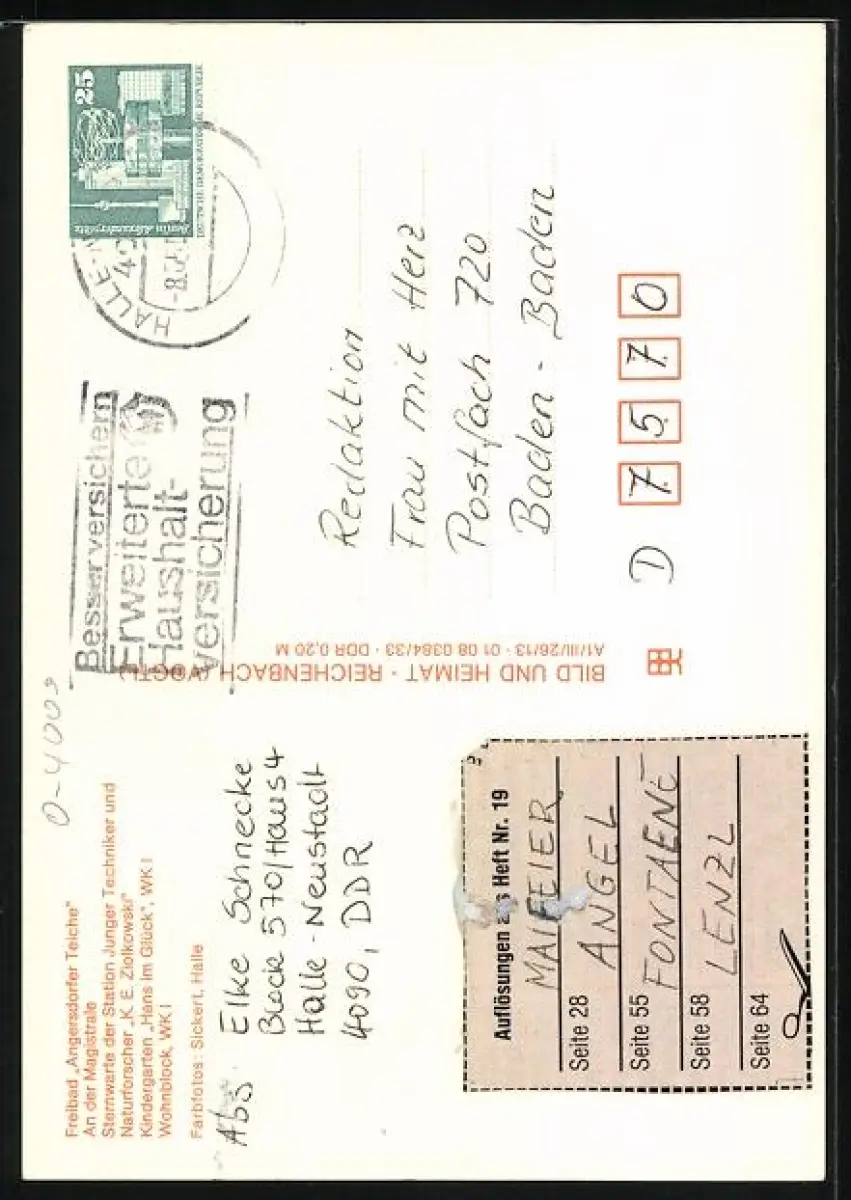 Freibad „Angersdorfer Teiche"
An der Magistrale
Sternwarte der Station Junger Techniker und
Naturforscher „K. E. Ziolkowski"
Kindergarten „Hans im Glück", WK I
Wohnblock, WK I
Farbfotos: Sickert, Halle
0-4009
Abs. Elke Schnecke
Block 570/Haus 4
Halle-Neustadt
4090, DDR
Auflösungen aus Heft Nr. 19
MAIFEIER
Seite 28
ANGEL
Seite 55
FONTAENE
Seite 58
LENZL
Seite 64
BILD UND HEIMAT · REICHENBACH (VOGTL)
A1/III/26/13 · 01 08 0384/33 · DDR 0,20 M
Besser versichern
Erweiterte
Haushalt-
versicherung
HALLE-N
40
-8.
25
Berlin, Alexanderplatz
DEUTSCHE DEMOKRATISCHE REPUBLIK
Redaktion
Frau mit Herz
Postfach 720
Baden-Baden
D 7570